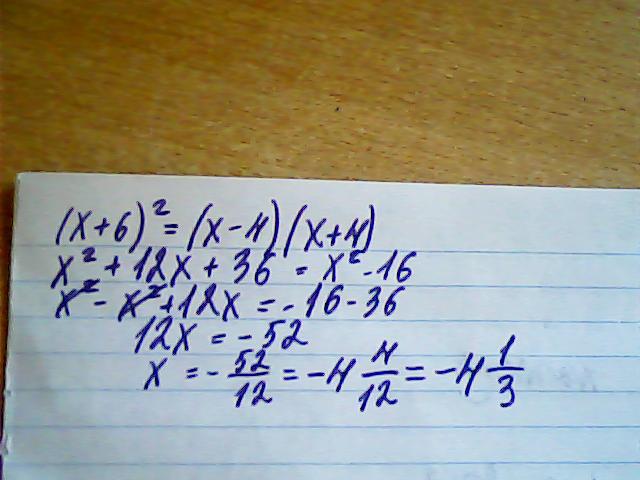 (x+6)² = (x-4)(x+4)
x² + 12x + 36 = x² - 16
x² - x² + 12x = -16 - 36
12x = -52
x = - 52/12 = -4 4/12 = -4 1/3